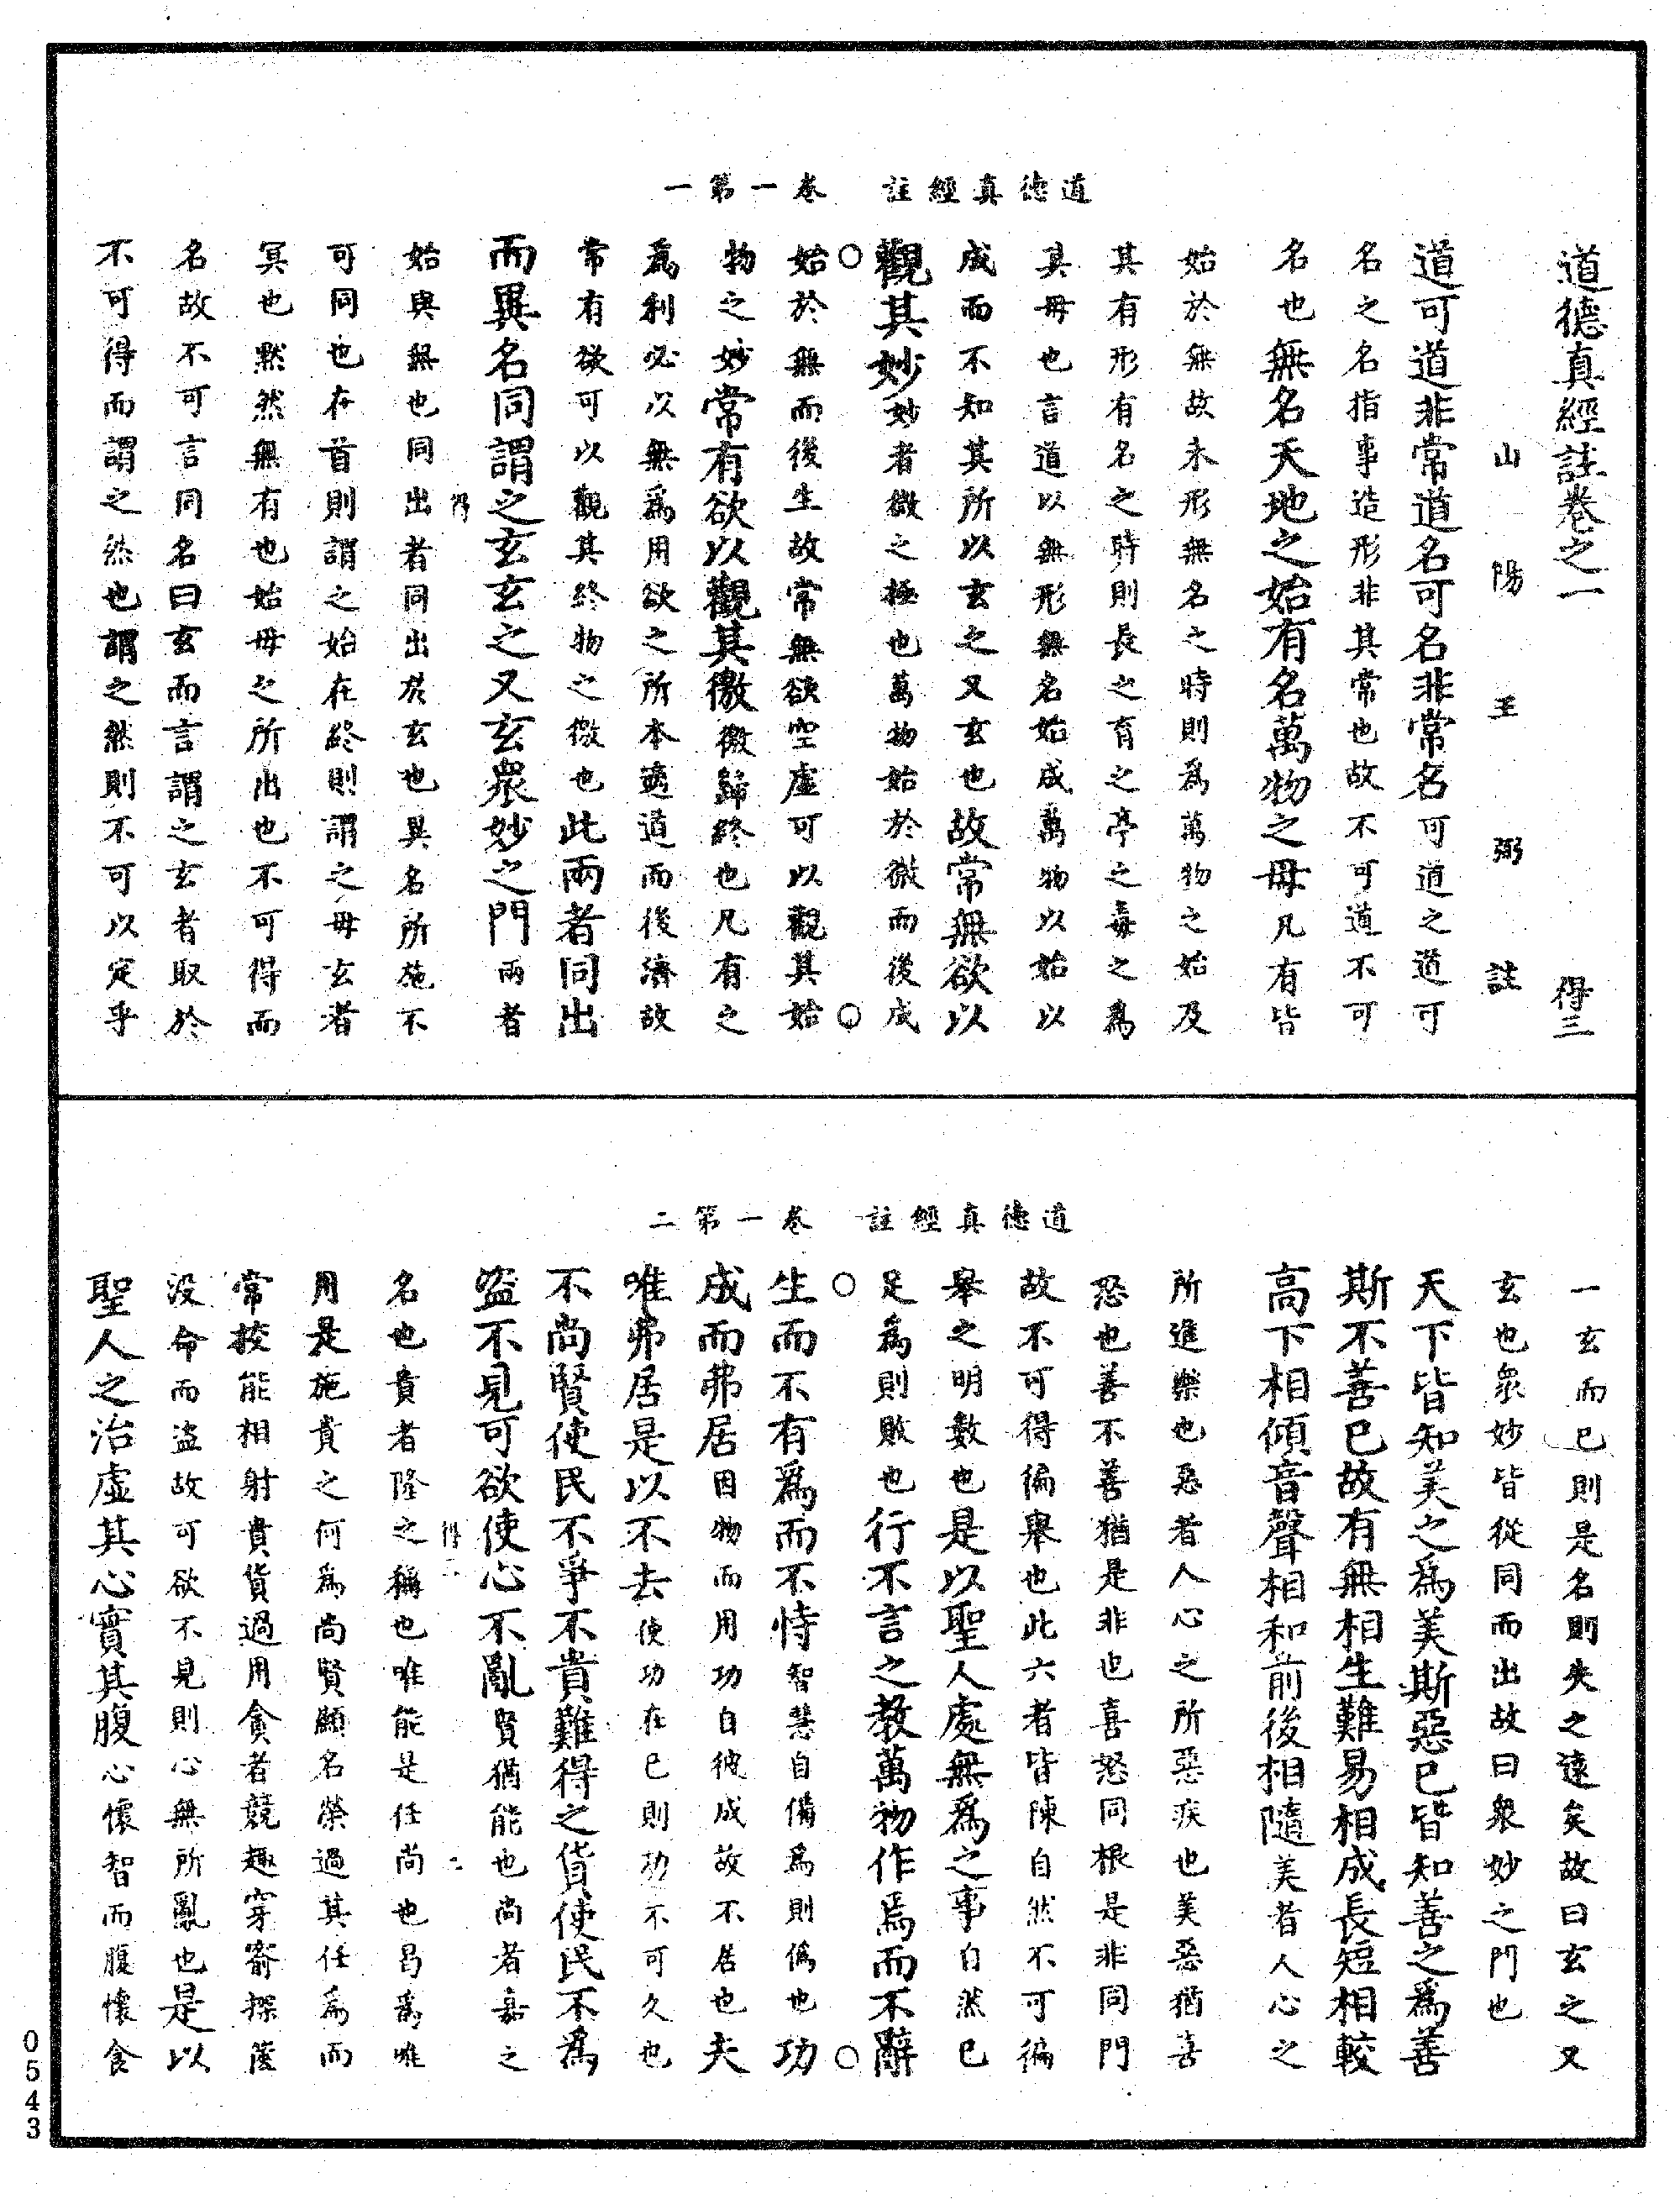 道德真經註　卷一第一
道德真經註卷之一　得三
山陽王弼註
道可道非常道名可名非常名可道之道可
名之名指事造形非其常也故不可道不可
名也無名天地之始有名萬物之母凡有皆
始於無故未形無名之時則為萬物之始及
其有形有名之時則長之育之亭之毒之為
其母也言道以無形無名始成萬物以始以
成而不知其所以玄之又玄也故常無欲以
觀其妙妙者微之極也萬物始於微而後成
始於無而後生故常無欲空虛可以觀其始
物之妙常有欲以觀其徼徼歸終也凡有之
為利必以無為用欲之所本適道而後濟故
常有欲可以觀其終物之徼也此兩者同出
而異名同謂之玄玄之又玄衆妙之門兩者
始與無也同出者同出於玄也異名所施不
可同也在首則謂之始在終則謂之母玄者
冥也默然無有也始母之所出也不可得而
名故不可言同名曰玄而言謂之玄者取於
不可得而謂之然也謂之然則不可以定乎
道德真經註　卷一第二
一玄而已則是名則失之遠矣故曰玄之又
玄也衆妙皆從同而出故曰衆妙之門也
天下皆知美之為美斯惡已皆知善之為善
斯不善已故有無相生難易相成長短相較
高下相傾音聲相和前後相隨美者人心之
所進樂也惡者人心之所惡疾也美惡猶喜
怒也善不善猶是非也喜怒同根是非同門
故不可得徧舉也此六者皆陳自然不可徧
舉之明數也是以聖人處無為之事自然已
足為則敗也行不言之教萬物作焉而不辭
生而不有為而不恃智慧自備為則偽也功
成而弗居因物而用功自彼成故不居也夫
唯弗居是以不去使功在已則功不可久也
不尚賢使民不爭不貴難得之貨使民不為
盜不見可欲使心不亂賢猶能也尚者嘉之
名也貴者隆之稱也唯能是任尚也曷為唯
用是施貴之何為尚賢顯名榮過其任為而
常挍能相射貴貨過用貪者競趣穿窬探篋
沒命而盜故可欲不見則心無所亂也是以
聖人之治虛其心實其腹心懷智而腹懷食
0543